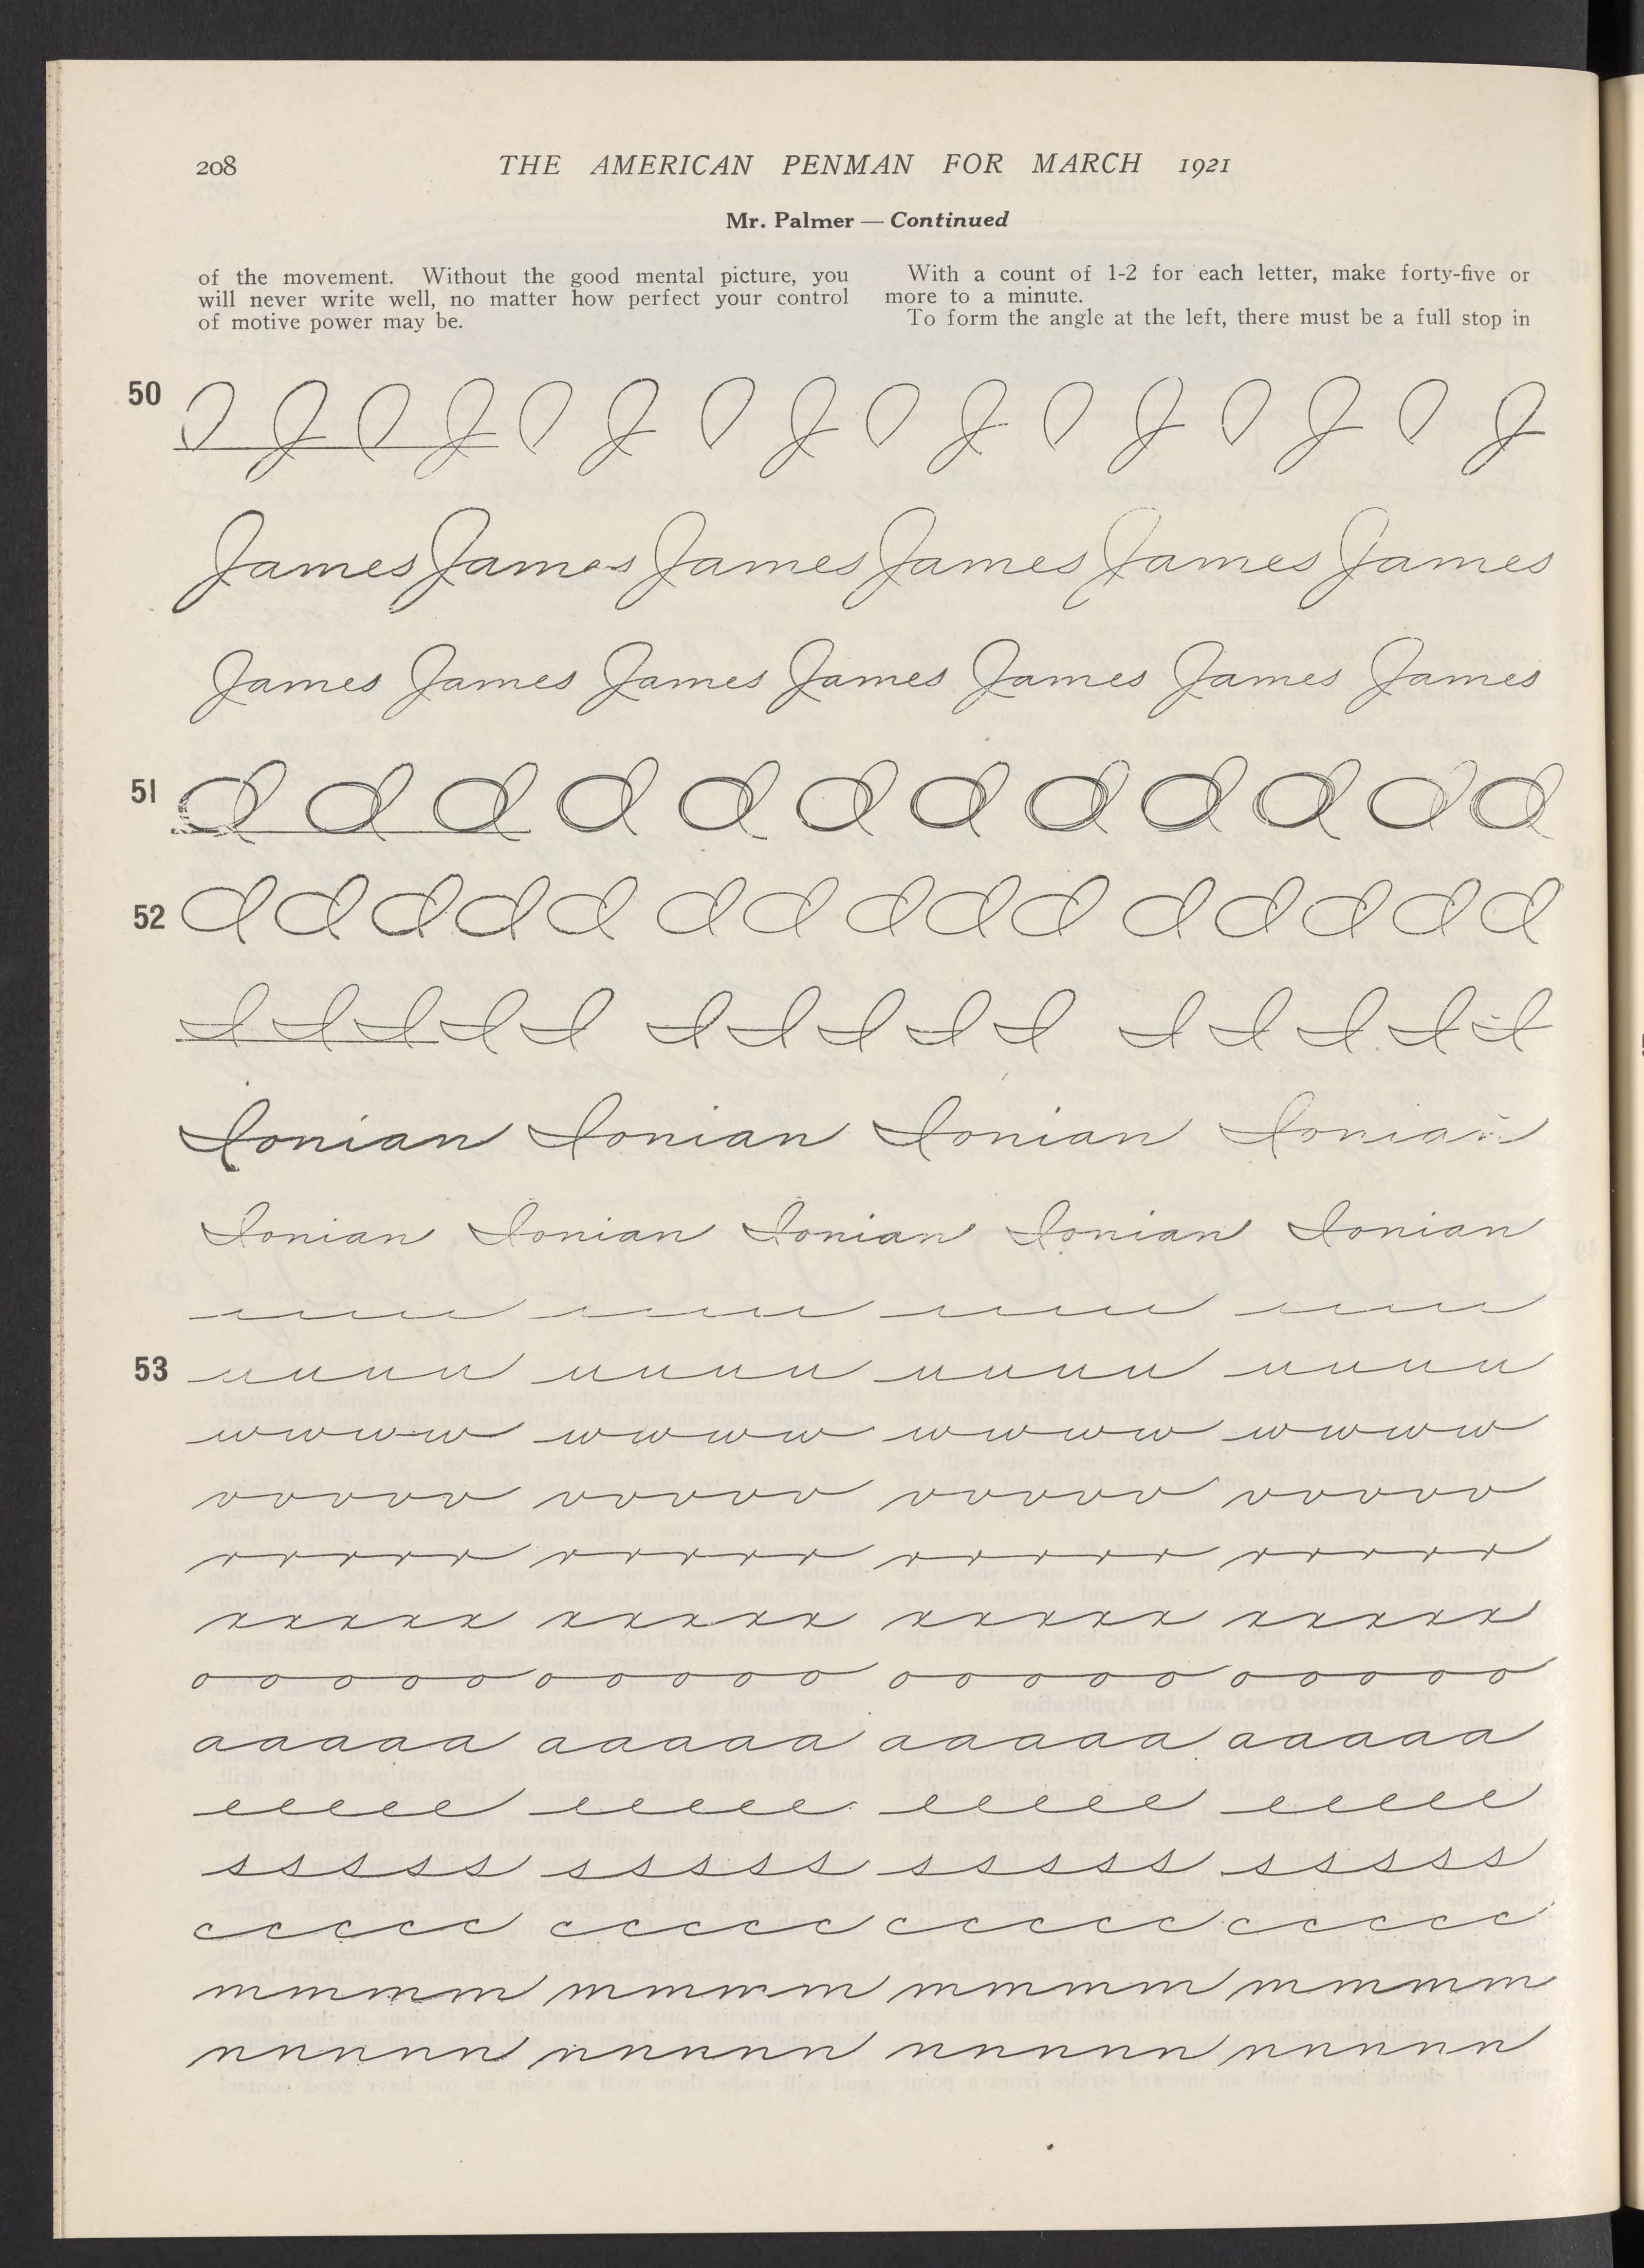 208
THE AMERICAN PENMAN FOR MARCH 1921
Mr. Palmer — Continued
of the movement. Without the good mental picture, you
will never write well, no matter how perfect your control
of motive power may be.
With a count of 1-2 for each letter, make forty-five or
more to a minute.
To form the angle at the left, there must be a full stop in
50 J J J J J J J J
James James James James James James
James James James James James James James
51
52
I I I I I I I I I I I I I I I
Ionian Ionian Ionian Ionian
Ionian Ionian Ionian Ionian Ionian
53 uuuu uuuu uuuu uuuu
wwww wwww wwww wwww
vvvvv vvvvv vvvvv vvvvv
rrrrr rrrrr rrrrr rrrrr
xxxxx xxxxx xxxxx xxxxx
ooooo ooooo ooooo ooooo
aaaaa aaaaa aaaaa aaaaa
eeeee eeeee eeeee eeeee
sssss sssss sssss sssss
ccccc ccccc ccccc ccccc
mmmm mmmm mmmm mmmm
nnnnn nnnnn nnnnn nnnnn